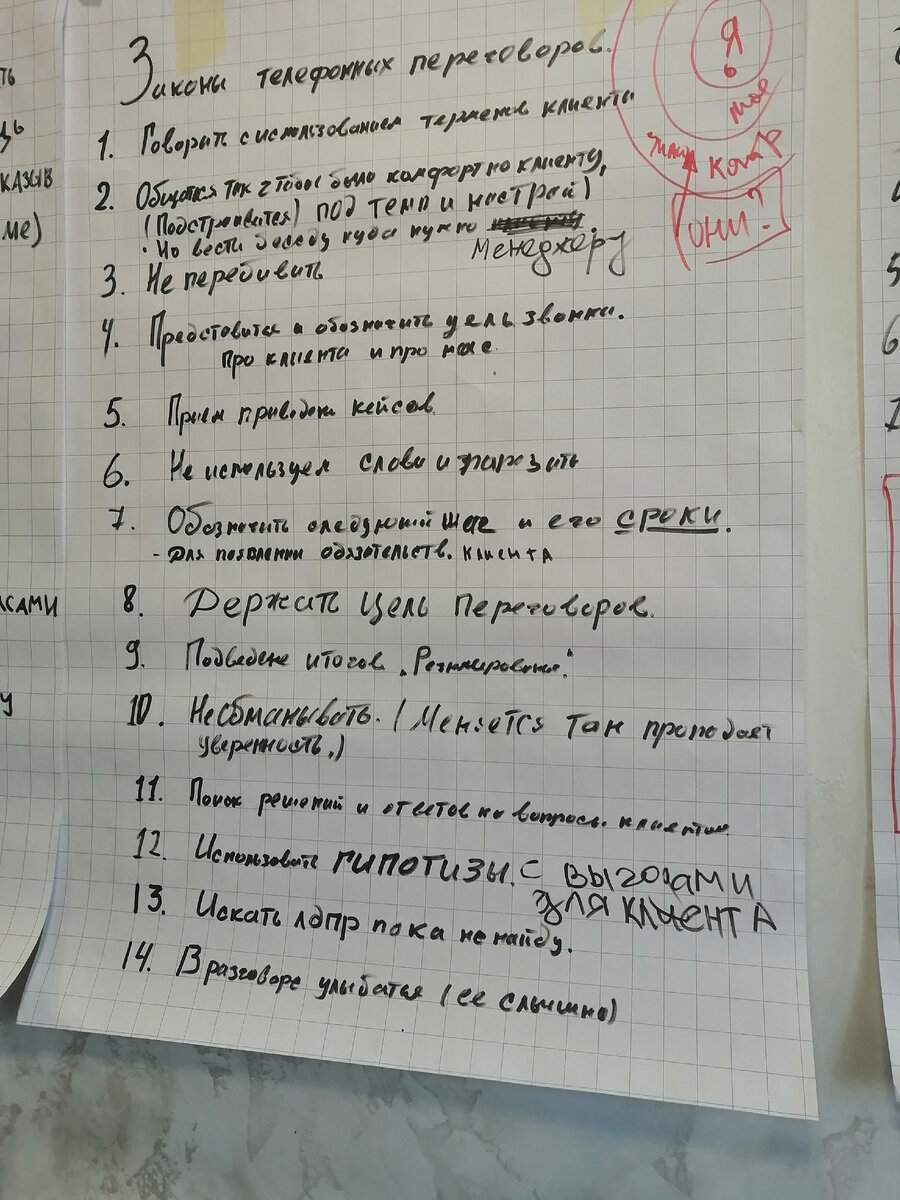 Законы телефонных переговоров.
1. Говорить с использованием терменов клиента
2. Общатся так чтобы было комфортно клиенту,
(Подстроивится) под темп и настрой)
· Но вести беседу куда нужно
Менеджеру
3. Не перебивить
4. Предстовится и обозначить цель звонка.
про клиента и про нас.
5. Прием приведен кейсов
6. Не используем слова и паразить
7. Обозначить следующий шаг и его сроки.
- Для появлении обязательств. клиента
8. Держать цель переговоров.
9. Подведене итогов „Резюмирование“.
10. Необманывать. (Меняется тан пропадает
уверенность.)
11. Поиск решений и ответов на вопросы клиентом
12. Использовать гипотизы. с выгодами
для клиента
13. Искать лдпр пока не найду.
14. В разговоре улыбатся (ее слышно)
Я
мое
они?
ть
казыв
ме)
сами
у
5
6